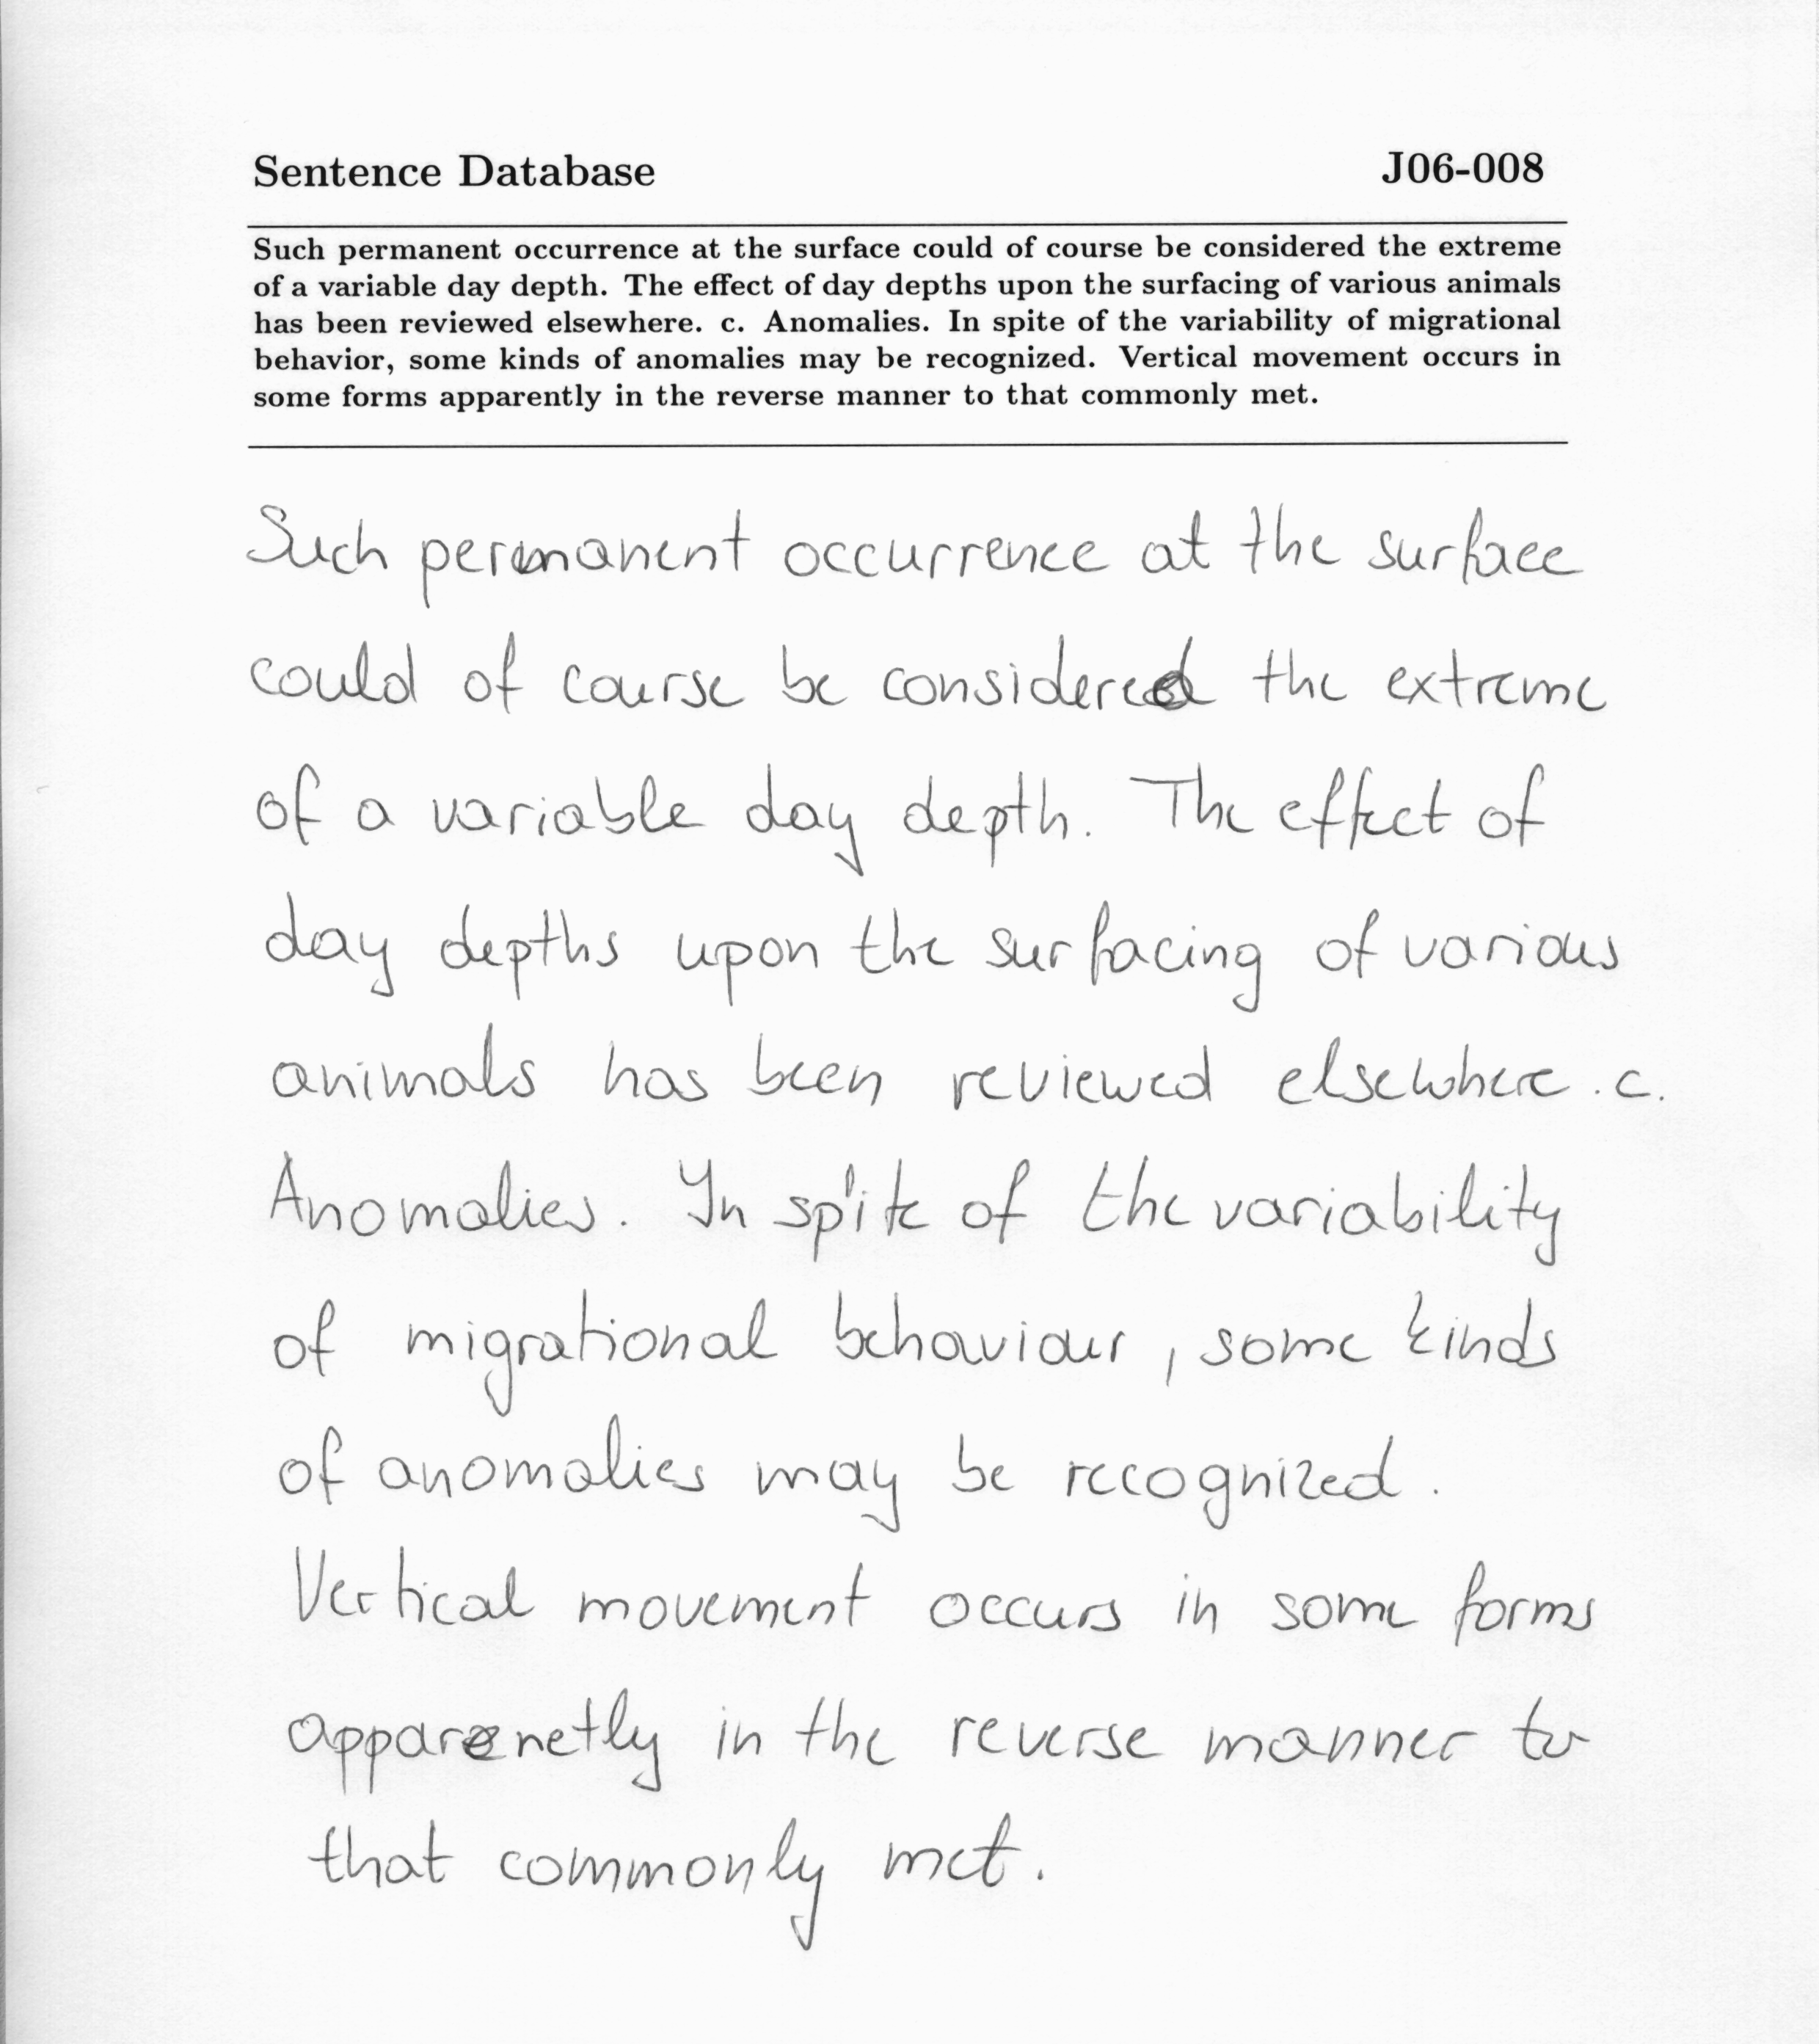 Sentence Database J06-008
Such permanent occurrence at the surface could of course be considered the extreme
of a variable day depth. The effect of day depths upon the surfacing of various animals
has been reviewed elsewhere. c. Anomalies. In spite of the variability of migrational
behavior, some kinds of anomalies may be recognized. Vertical movement occurs in
some forms apparently in the reverse manner to that commonly met.
Such permanent occurrence at the surface
could of course be considered the extreme
of a variable day depth. The effect of
day depths upon the surfacing of various
animals has been reviewed elsewhere. c.
Anomalies. In spite of the variability
of migrational behaviour, some kinds
of anomalies may be recognized.
Vertical movement occurs in some forms
apparenetly in the reverse manner to
that commonly met.